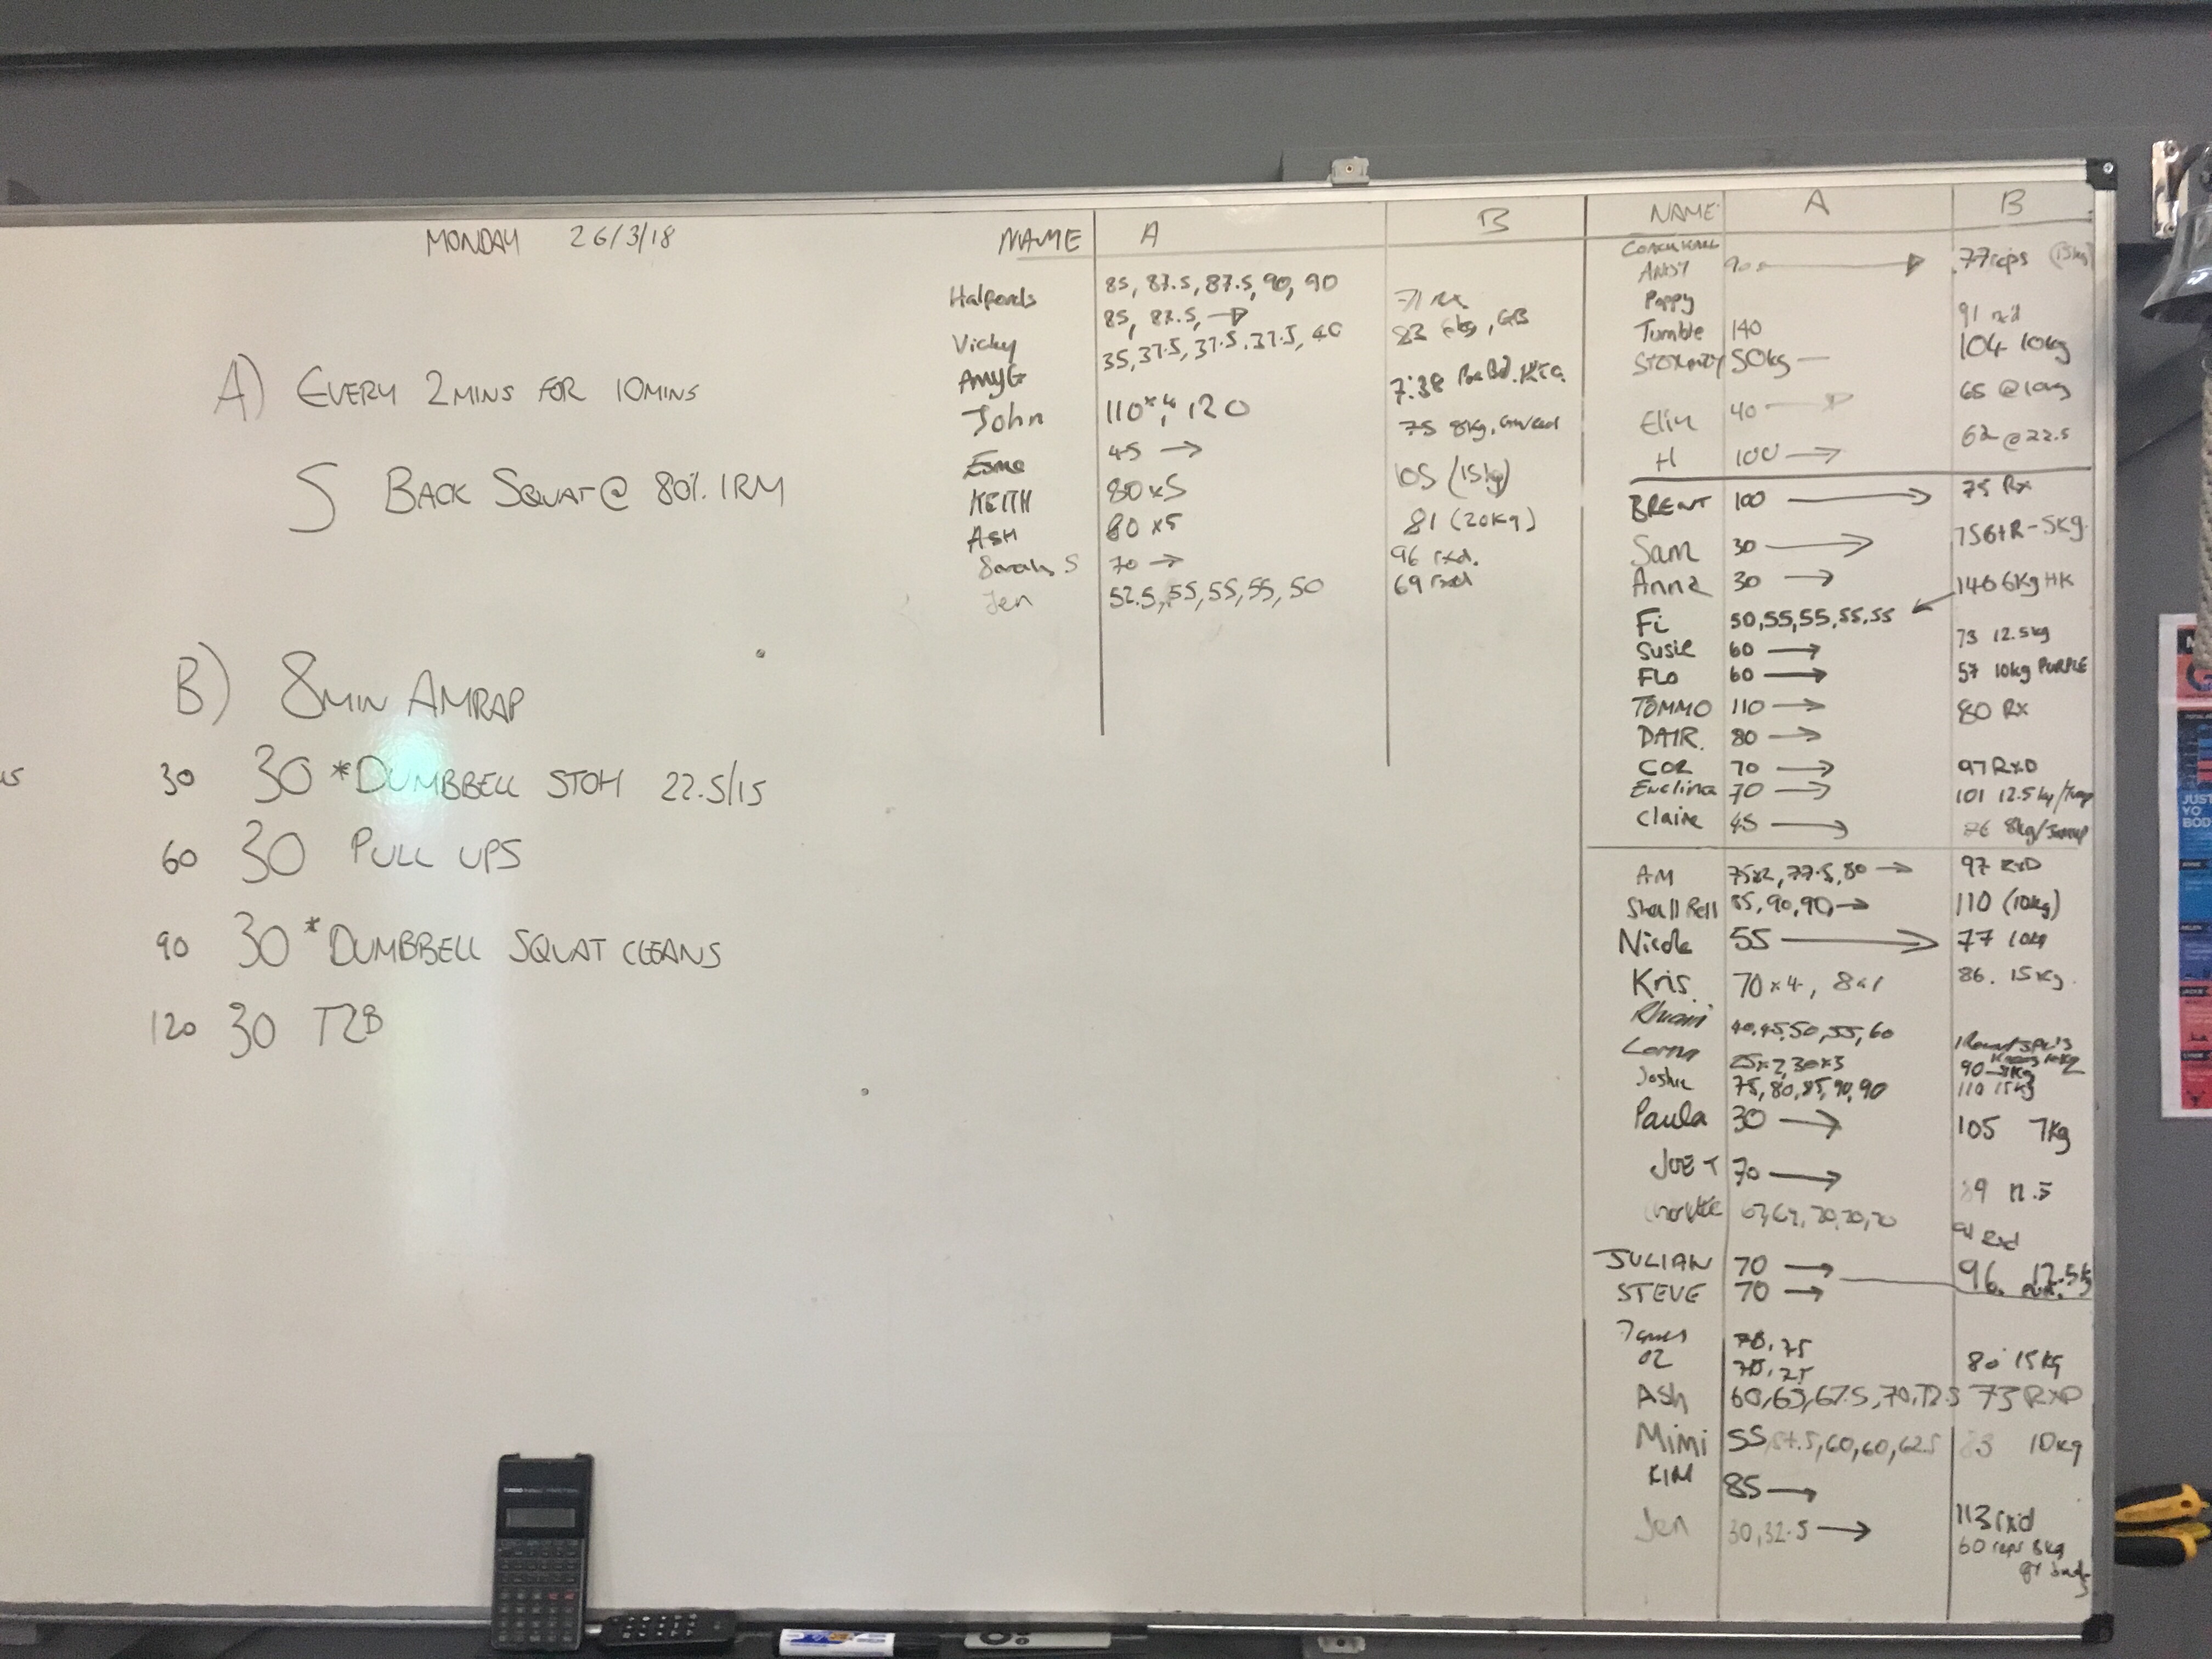 MONDAY 26/3/18
A) EVERY 2 MINS FOR 10 MINS
5 BACK SQUAT @ 80% 1RM
B) 8 MIN AMRAP
30 30 *DUMBBELL STOH 22.5/15
60 30 PULL UPS
90 30 *DUMBBELL SQUAT CLEANS
120 30 T2B
NAME A B
Halfords 85, 87.5, 87.5, 90, 90 71 rx
85, 87.5, →
Vicky 35, 37.5, 37.5, 37.5, 40 83 GB
AmyG 7:38
John 110×4, 120 75 8kg
Esme 45 →
KEITH 80 x 5 105 (15kg)
ASH 80 x5 81 (20kg)
Sarah S 70 → 96 rxd.
Jen 52.5, 55, 55, 55, 50 69 rxd
NAME A B
ANDY 77 reps (15kg)
Poppy 91
Tumble 140 104 10kg
50kg — 65 @ 10kg
40 →
H 100 → 62 @ 22.5
BRENT 100 → 75 Rx
Sam 30 → -5kg
Anna 30 → 146 6kg HK
Fi 50, 55, 55, 55, 55
Susie 60 → 73 12.5kg
FLO 60 → 57 10kg PURPLE
TOMMO 110 → 80 Rx
80 →
COL 70 → 97 RxD
Evelina 70 → 101 12.5kg/Jump
Claire 45 → 8kg/Jump
AM 75x2, 77.5, 80 → 97 RxD
85, 90, 90, → 110 (10kg)
Nicole 55 → 77 10kg
Kris. 70 x 4, 86. 15kg.
40, 45, 50, 55, 60
Lorna 25×2, 30×3 90
75, 80, 85, 90, 90 110 15kg
Paula 30 → 105 7kg
JOE T 70 →
70, 70, 70 Rxd
JULIAN 70 → 96 12.5kg
STEVE 70 →
James 70, 75
OZ 80 15kg
Ash 60, 65, 67.5, 70, 72.5 73 RXD
Mimi 55, 57.5, 60, 60, 62.5 83 10kg
KIM 85 → 113 rxd
Jen 30, 32.5 → 60 reps 8kg
JUST
YO
BOD